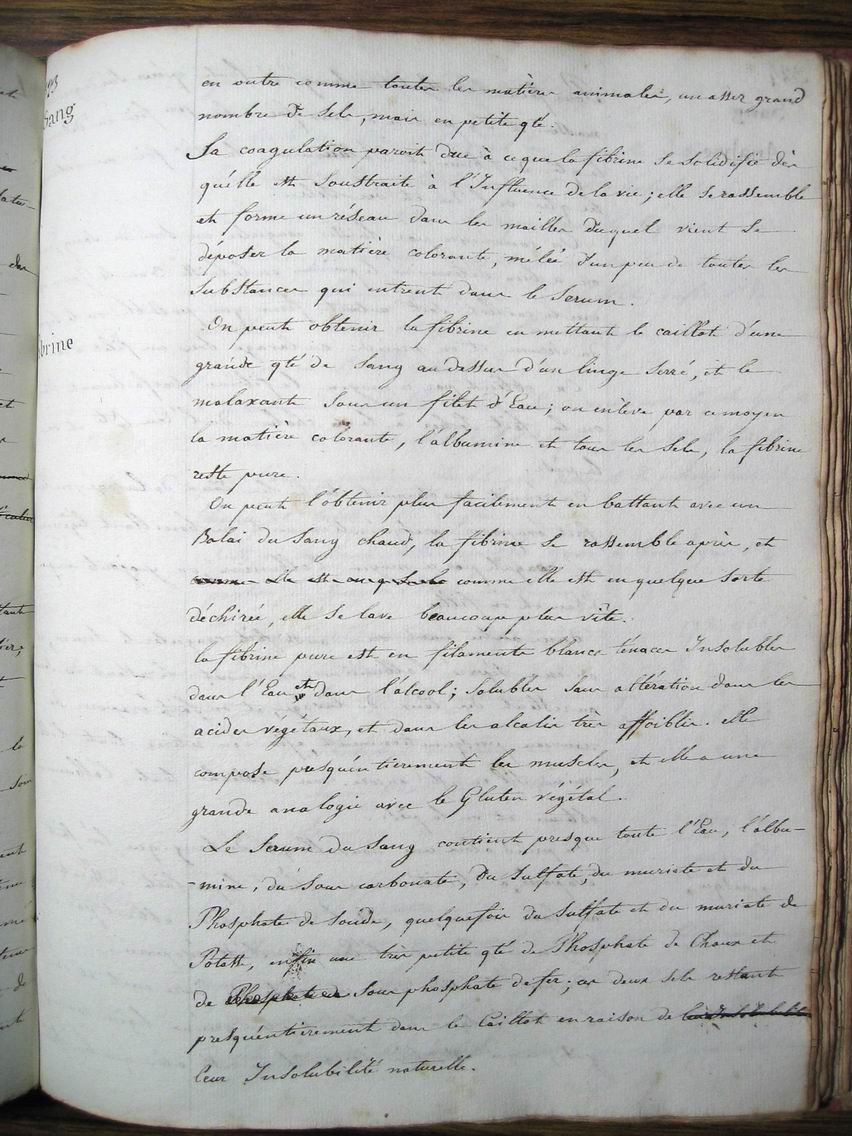 Sang
en outre comme toutes les matières animales, un assez grand
nombre de Sels, mais en petite qté.
Sa coagulation paroit due à ce que la fibrine se solidifie dès
qu'elle est soustraite à l'Influence de la vie ; elle se rassemble
et forme un réseau dans les mailles duquel vient se
déposer la matière colorante, mêlée d'un peu de toutes les
Substances qui entrent dans le Serum.
fibrine
On peut obtenir la fibrine en mettant le caillot d'une
grande qté de Sang au dessus d'un linge serré, et le
malaxant sous un filet d'Eau ; on enlève par ce moyen
la matière colorante, l'albumine et tous les Sels, la fibrine
reste pure.
On peut l'obtenir plus facilement en battant avec un
Balai du Sang chaud, la fibrine se rassemble après, et
comme elle est en quelque sorte
déchirée, elle se lave beaucoup plus vîte.
la fibrine pure est en filaments blancs tenaces Insolubles
dans l'Eau et dans l'alcool ; solubles sans altération dans les
acides végétaux, et dans les alcalis très affoiblis. elle
compose presqu'entièrement les muscles, et elle a une
grande analogie avec le Gluten végétal.
Le Serum du Sang contient presque toute l'Eau, l'albu-
-mine, du sous carbonate, du Sulfate, du muriate et du
Phosphate de Soude, quelquefois du Sulfate et du muriate de
Potasse, enfin une très petite qté de Phosphate de Chaux et
de Sous phosphate de fer ; ces deux sels restant
presqu'entièrement dans le Caillot en raison de
leur Insolubilité naturelle.